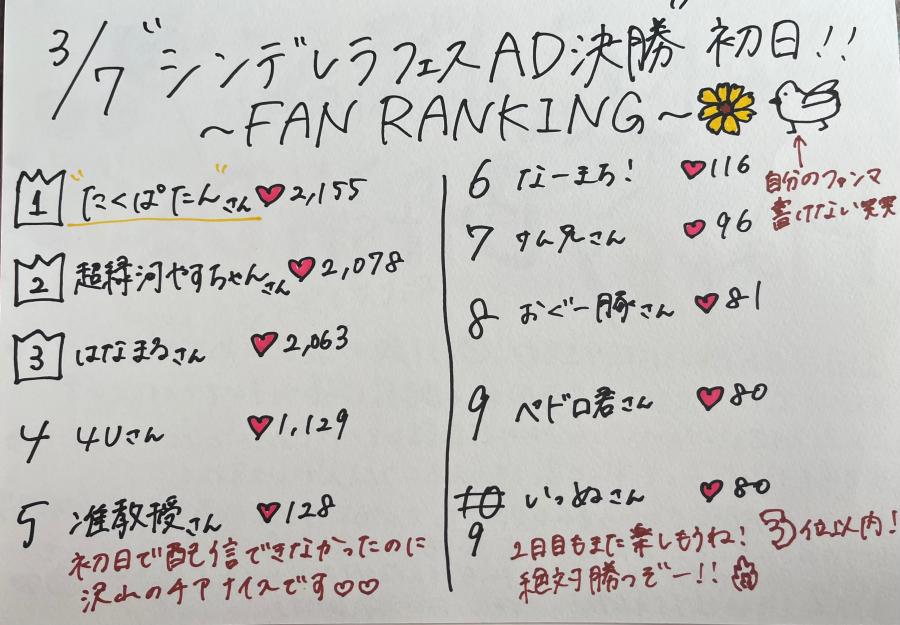 3/7 "シンデレラフェスAD決勝" 初日!!
~FAN RANKING~
自分のファンマ
書けない笑笑
1 "たくぱたん"さん ♥2,155
2 超緑河やすちゃんさん ♥2,078
3 はなまるさん ♥2,063
4 4Uさん ♥1,129
5 准教授さん ♥128
初日で配信できなかったのに
沢山のチアナイスです♡♡
6 なーまろ! ♥116
7 サム兄さん ♥96
8 おぐー豚さん ♥81
9 ペドロ君さん ♥80
10 いっぬさん ♥80
9
2日目もまた楽しもうね! ③位以内!
絶対勝つぞー!!